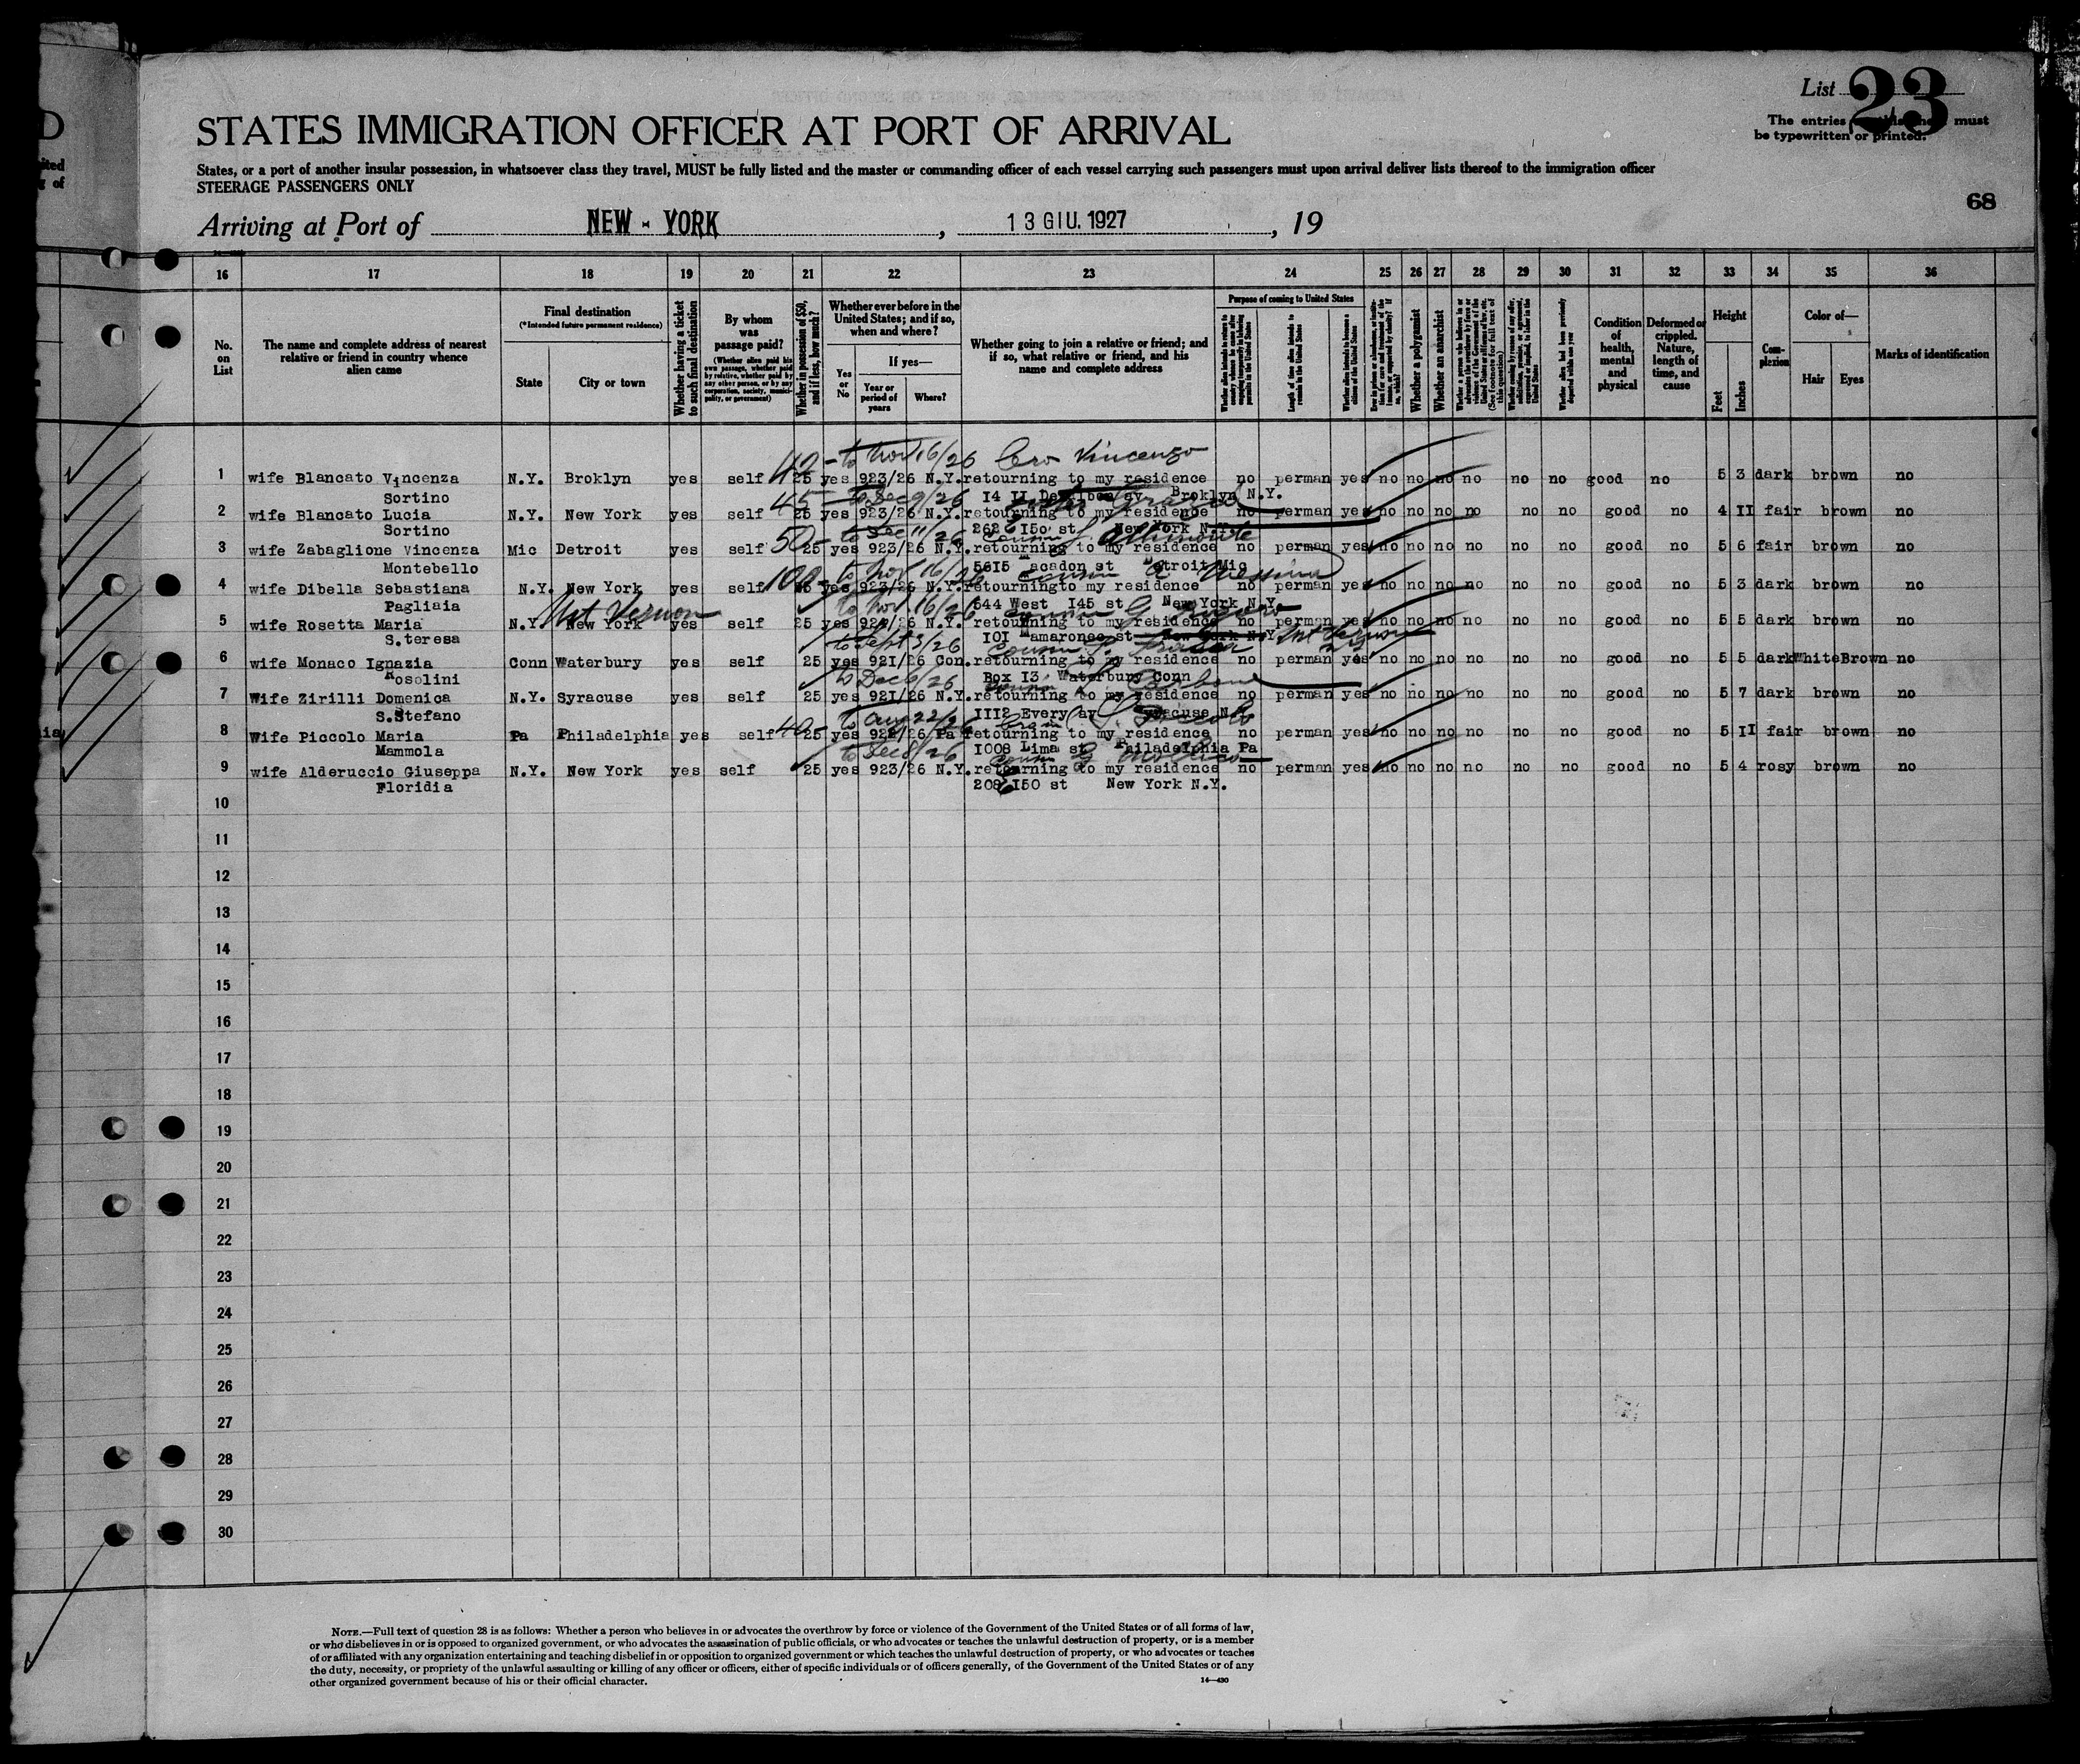 D
List 23
The entries on this sheet must
be typewritten or printed.
STATES IMMIGRATION OFFICER AT PORT OF ARRIVAL
States, or a port of another insular possession, in whatsoever class they travel, MUST be fully listed and the master or commanding officer of each vessel carrying such passengers must upon arrival deliver lists thereof to the immigration officer
STEERAGE PASSENGERS ONLY
68
Arriving at Port of NEW - YORK , 13 GIU. 1927 , 19
16 17 18 19 20 21 22 23 24 25 26 27 28 29 30 31 32 33 34 35 36
No. on List
The name and complete address of nearest relative or friend in country whence alien came
Final destination
(*Intended future permanent residence)
State
City or town
Whether having a ticket to such final destination
By whom was passage paid?
(Whether alien paid his own passage, whether paid by relative, whether paid by any other person, or by any corporation, society, municipality, or government)
Whether in possession of $50, and if less, how much?
Whether ever before in the United States; and if so, when and where?
Yes or No
If yes—
Year or period of years
Where?
Whether going to join a relative or friend; and if so, what relative or friend, and his name and complete address
Purpose of coming to United States
Length of time alien intends to remain in the United States
Whether alien intends to become a citizen of the United States
Whether a polygamist
Whether an anarchist
Whether alien had been previously deported within one year
Condition of health, mental and physical
Deformed or crippled. Nature, length of time, and cause
Height
Feet
Inches
Complexion
Color of—
Hair
Eyes
Marks of identification
40- to Nov 16/26 Vincenzo
1 wife Blancato Vincenza N.Y. Broklyn yes self 25 yes 923/26 N.Y. retourning to my residence no perman yes no no no no no no good no 5 3 dark brown no
Sortino I4 II av Broklyn N.Y.
45- to Dec 9/26
2 wife Blancato Lucia N.Y. New York yes self 25 yes 923/26 N.Y. retourning to my residence no perman yes no no no no no no good no 4 II fair brown no
Sortino 262 I50 st New York N.Y.
50- to Dec 11/26 cousin
3 wife Zabaglione Vincenza Mic Detroit yes self 25 yes 923/26 N.Y. retourning to my residence no perman yes no no no no no no good no 5 6 fair brown no
Montebello 5615 Macadon st Detroit Mic
100- to Nov 16/26 cousin Messina
4 wife Dibella Sebastiana N.Y. New York yes self yes 923/26 N.Y. retourningto my residence no perman yes no no no no no no good no 5 3 dark brown no
Pagliaia 544 West I45 st New York N.Y.
Mt Vernon to Nov 16/26 cousin G
5 wife Rosetta Maria N.Y. New York yes self 25 yes N.Y. retourning to my residence no perman yes no no no no no no good no 5 5 dark brown no
S.teresa IOI Mamaronec st New York N.Y. Mt Vernon
to Sept 3/26 cousin
6 wife Monaco Ignazia Conn Waterbury yes self 25 yes 921/26 Con. retourning to my residence no perman yes no no no no no no good no 5 5 dark White Brown no
Rosolini Box I3 Waterbury Conn
to Dec 9/26 cousin
7 Wife Zirilli Domenica N.Y. Syracuse yes self 25 yes 921/26 N.Y. retourning to my residence no perman yes no no no no no no good no 5 7 dark brown no
S.Stefano III2 Every av Syracuse N.Y.
40- to Aug 22/26
8 Wife Piccolo Maria Pa Philadelphia yes self 25 yes Pa retourning to my residence no perman yes no no no no no no good no 5 II fair brown no
Mammola I008 Lima st Philadelphia Pa
to Dec 8/26 cousin G.
9 wife Alderuccio Giuseppa N.Y. New York yes self 25 yes 923/26 N.Y. retourning to my residence no perman yes no no no no no no good no 5 4 rosy brown no
Floridia I50 st New York N.Y.
10
11
12
13
14
15
16
17
18
19
20
21
22
23
24
25
26
27
28
29
30
NOTE.—Full text of question 28 is as follows: Whether a person who believes in or advocates the overthrow by force or violence of the Government of the United States or of all forms of law,
or who disbelieves in or is opposed to organized government, or who advocates the assassination of public officials, or who advocates or teaches the unlawful destruction of property, or is a member
of or affiliated with any organization entertaining and teaching disbelief in or opposition to organized government or which teaches the unlawful destruction of property, or who advocates or teaches
the duty, necessity, or propriety of the unlawful assaulting or killing of any officer or officers, either of specific individuals or of officers generally, of the Government of the United States or of any
other organized government because of his or their official character.
14—430